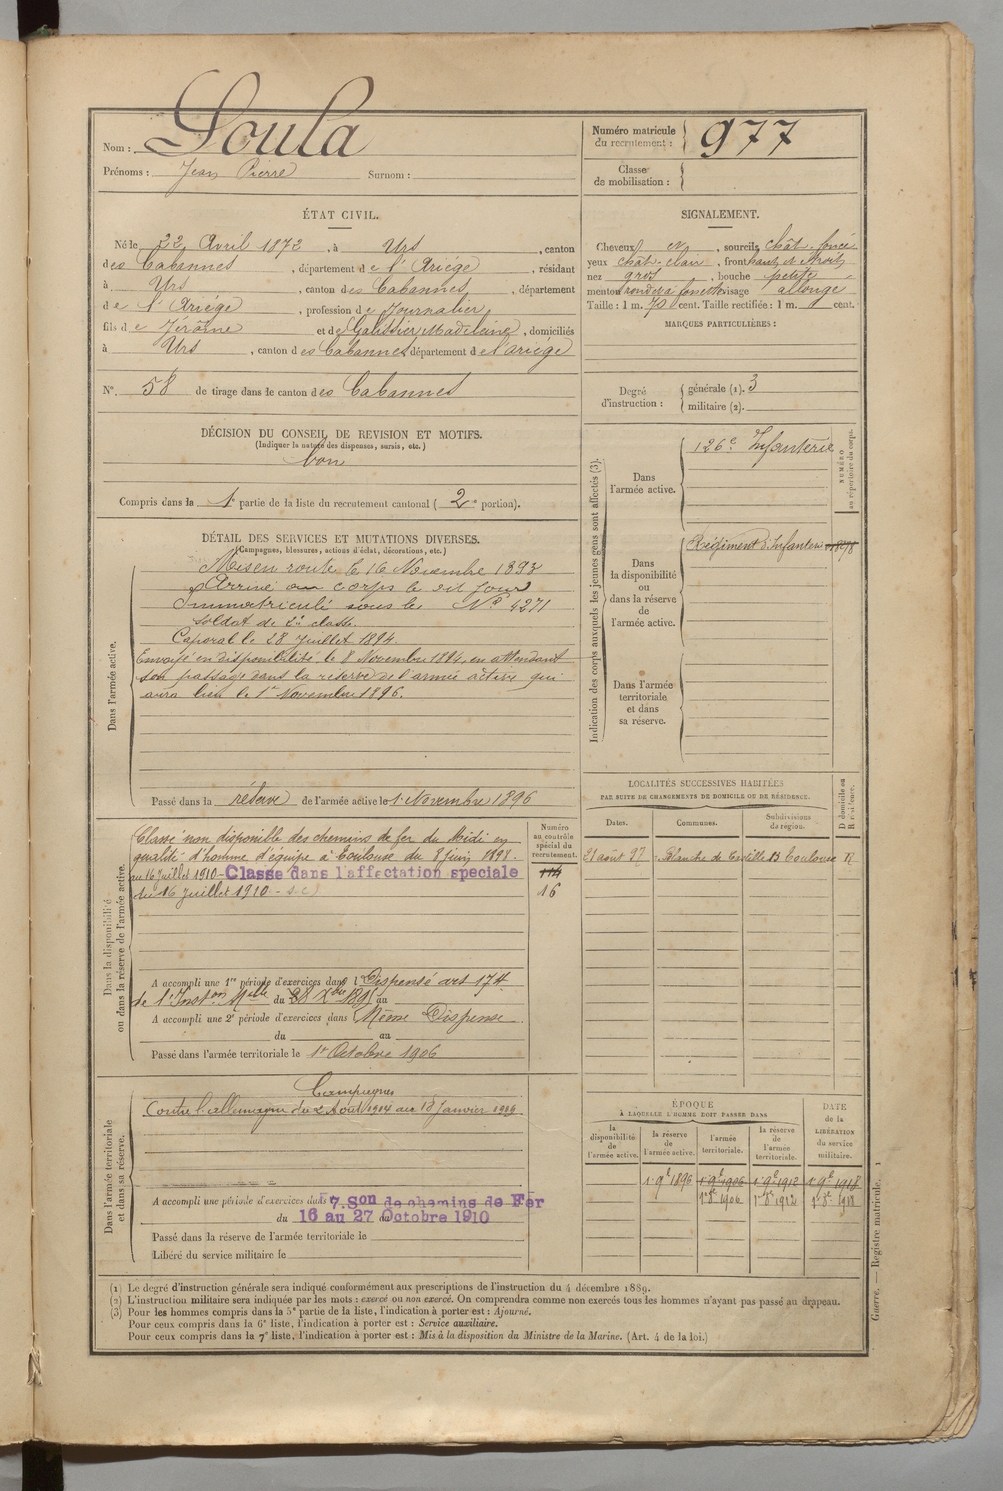 Nom : Loula
Prénoms : Jean Pierre Surnom :
Numéro matricule du recrutement : 977
Classe de mobilisation :
ÉTAT CIVIL.
Né le 22 Avril 1872, à Urs, canton
des Cabannes, département de l'Ariège, résidant
à Urs, canton des Cabannes, département
de l'Ariège, profession de Journalier
fils de Jérôme et de Gaussier Madeleine, domiciliés
à Urs, canton des Cabannes département de l'ariège
N°. 58 de tirage dans le canton des Cabannes
DÉCISION DU CONSEIL DE REVISION ET MOTIFS.
(Indiquer la nature des dispenses, sursis, etc.)
bon
Compris dans la 1e partie de la liste du recrutement cantonal ( 2e portion).
SIGNALEMENT.
Cheveux, sourcils chât. foncé
yeux chât. clair, front haut et étroit
nez gros, bouche petite
menton rond à fossette visage allongé
Taille : 1 m. 70 cent. Taille rectifiée : 1 m. cent.
MARQUES PARTICULIÈRES :
Degré d'instruction :
générale (1). 3
militaire (2).
DÉTAIL DES SERVICES ET MUTATIONS DIVERSES.
(Campagnes, blessures, actions d'éclat, décorations, etc.)
Dans l'armée active.
Mis en route le 16 Novembre 1893
Arrivé au corps le dit jour
Immatriculé sous le N° 4271
soldat de 2e classe.
Caporal le 28 Juillet 1894
Envoyé en disponibilité le 8 Novembre 1894, en attendant
son passage dans la réserve de l'armée active qui
aura lieu le 1er Novembre 1896.
Passé dans la réserve de l'armée active le 1er Novembre 1896
Indication des corps auxquels les jeunes gens sont affectés (3).
Dans l'armée active.
126e Infanterie
NUMÉRO au répertoire du corps.
Dans la disponibilité ou dans la réserve de l'armée active.
Régiment d'Infanterie
Dans l'armée territoriale et dans sa réserve.
LOCALITÉS SUCCESSIVES HABITÉES
PAR SUITE DE CHANGEMENTS DE DOMICILE OU DE RÉSIDENCE.
Dates. Communes. Subdivisions de région. D domicile ou R résidence.
21 août 97 Blanche de Castille 13 Toulouse R
Dans la disponibilité ou dans la réserve de l'armée active.
Numéro au contrôle spécial du recrutement.
114
16
Classé non disponible des chemins de fer du Midi en
qualité d'homme d'équipe à Toulouse du 8 juin 1898.
au 16 Juillet 1910 - Classe dans l'affectation speciale
du 16 Juillet 1910 -
A accompli une 1re période d'exercices dans l Dispensé art 174
de l'Inston Mille du 28 Xbre 1895 au
A accompli une 2e période d'exercices dans Même Dispense
du au
Passé dans l'armée territoriale le 1er Octobre 1906
Dans l'armée territoriale et dans sa réserve.
Campagnes
Contre l'allemagne du 2 Août 1914 au 18 Janvier 1919
A accompli une période d'exercices dans 7. Son de chemins de Fer
du 16 au 27 Octobre 1910
Passé dans la réserve de l'armée territoriale le
Libéré du service militaire le
ÉPOQUE
À LAQUELLE L'HOMME DOIT PASSER DANS
DATE de la LIBÉRATION du service militaire.
la disponibilité de l'armée active. la réserve de l'armée active. l'armée territoriale. la réserve de l'armée territoriale.
1. 9e 1896 1. 9e 1906 1. 9e 1912 1. 9e 1918
1er 8e 1906 1er 8e 1912 1er 8e 1918
(1) Le degré d'instruction générale sera indiqué conformément aux prescriptions de l'instruction du 4 décembre 1889.
(2) L'instruction militaire sera indiquée par les mots : exercé ou non exercé. On comprendra comme non exercés tous les hommes n'ayant pas passé au drapeau.
(3) Pour les hommes compris dans la 5e partie de la liste, l'indication à porter est : Ajourné.
Pour ceux compris dans la 6e liste, l'indication à porter est : Service auxiliaire.
Pour ceux compris dans la 7e liste, l'indication à porter est : Mis à la disposition du Ministre de la Marine. (Art. 4 de la loi.)
Guerre. — Registre matricule. 1